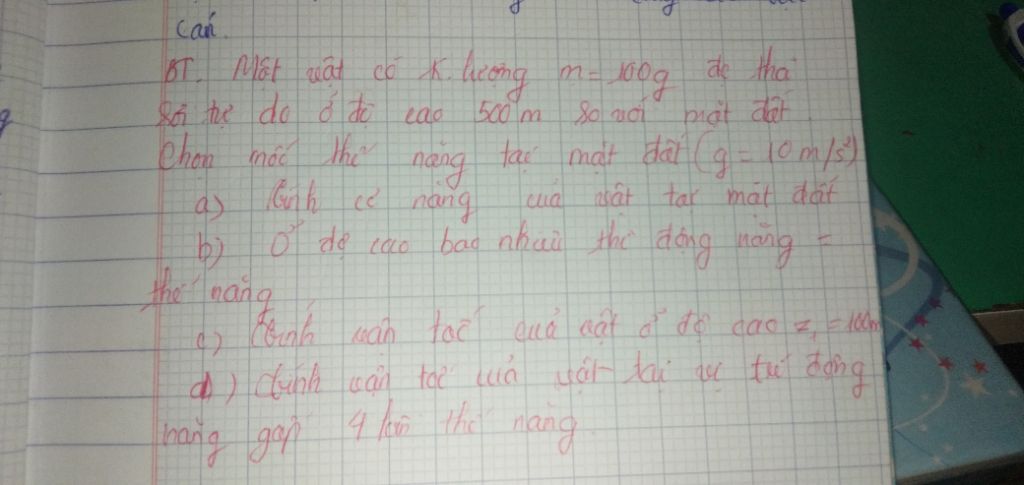 can.
BT. Một vật có k. lượng m = 100g đc thả
rơi tự do ở độ cao 500m so với mặt đất.
Chọn mốc thế năng tại mặt đất (g = 10 m/s²)
a) tính cơ năng của vật tại mặt đất
b) Ở độ cao bao nhiêu thì động năng =
thế năng
c) tính vận tốc của vật ở độ cao z₁ = 100m
d) tính vận tốc của vật tại vị trí động
năng gấp 4 lần thế năng